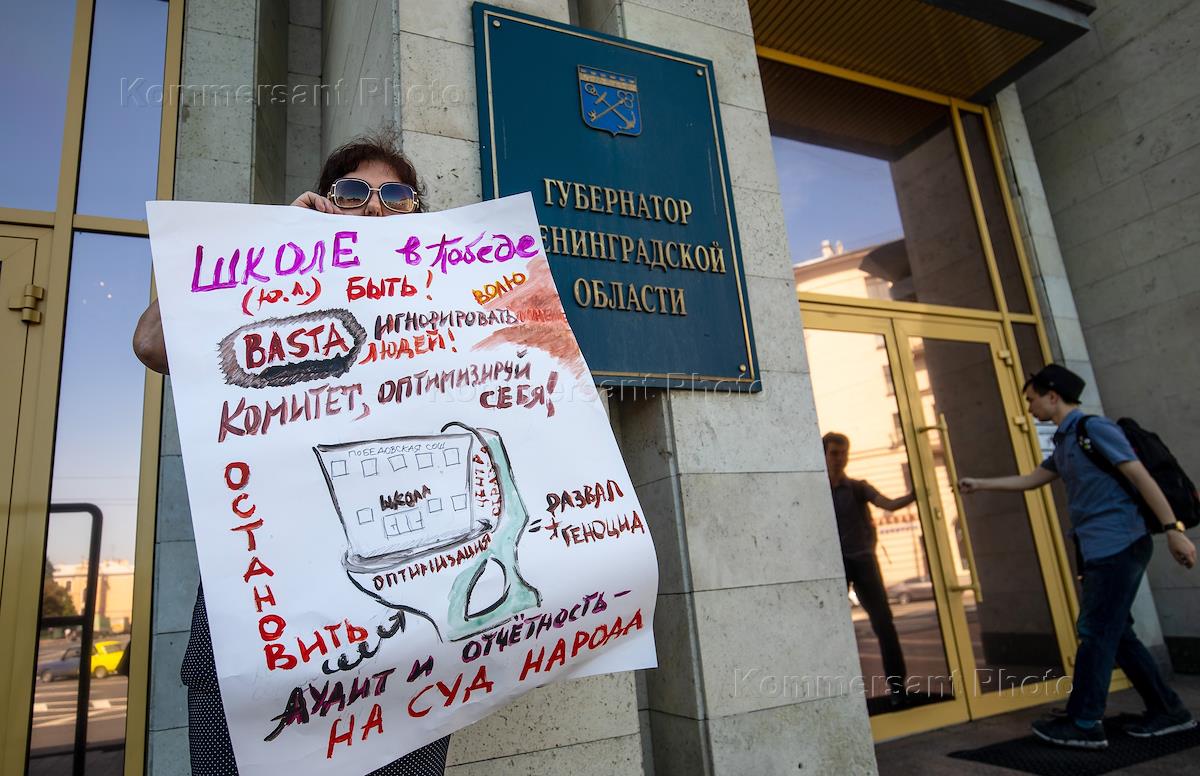 Kommersant Photo
ГУБЕРНАТОР
ЕНИНГРАДСКОЙ
ОБЛАСТИ
ШКОЛЕ в Победе
(Ю.Л.) БЫТЬ!
BASTA ИГНОРИРОВАТЬ ВОЛЮ
ЛЮДЕЙ!
КОМИТЕТ, ОПТИМИЗИРУЙ
СЕБЯ!
ОСТАНОВИТЬ
ПОБЕДОВСКАЯ СОШ
ШКОЛА
ОПТИМИЗАЦИЯ
= РАЗВАЛ
+ ГЕНОЦИД
АУДИТ И ОТЧЁТНОСТЬ –
НА СУД НАРОДА
Kommersant Photo
Kommersant Photo